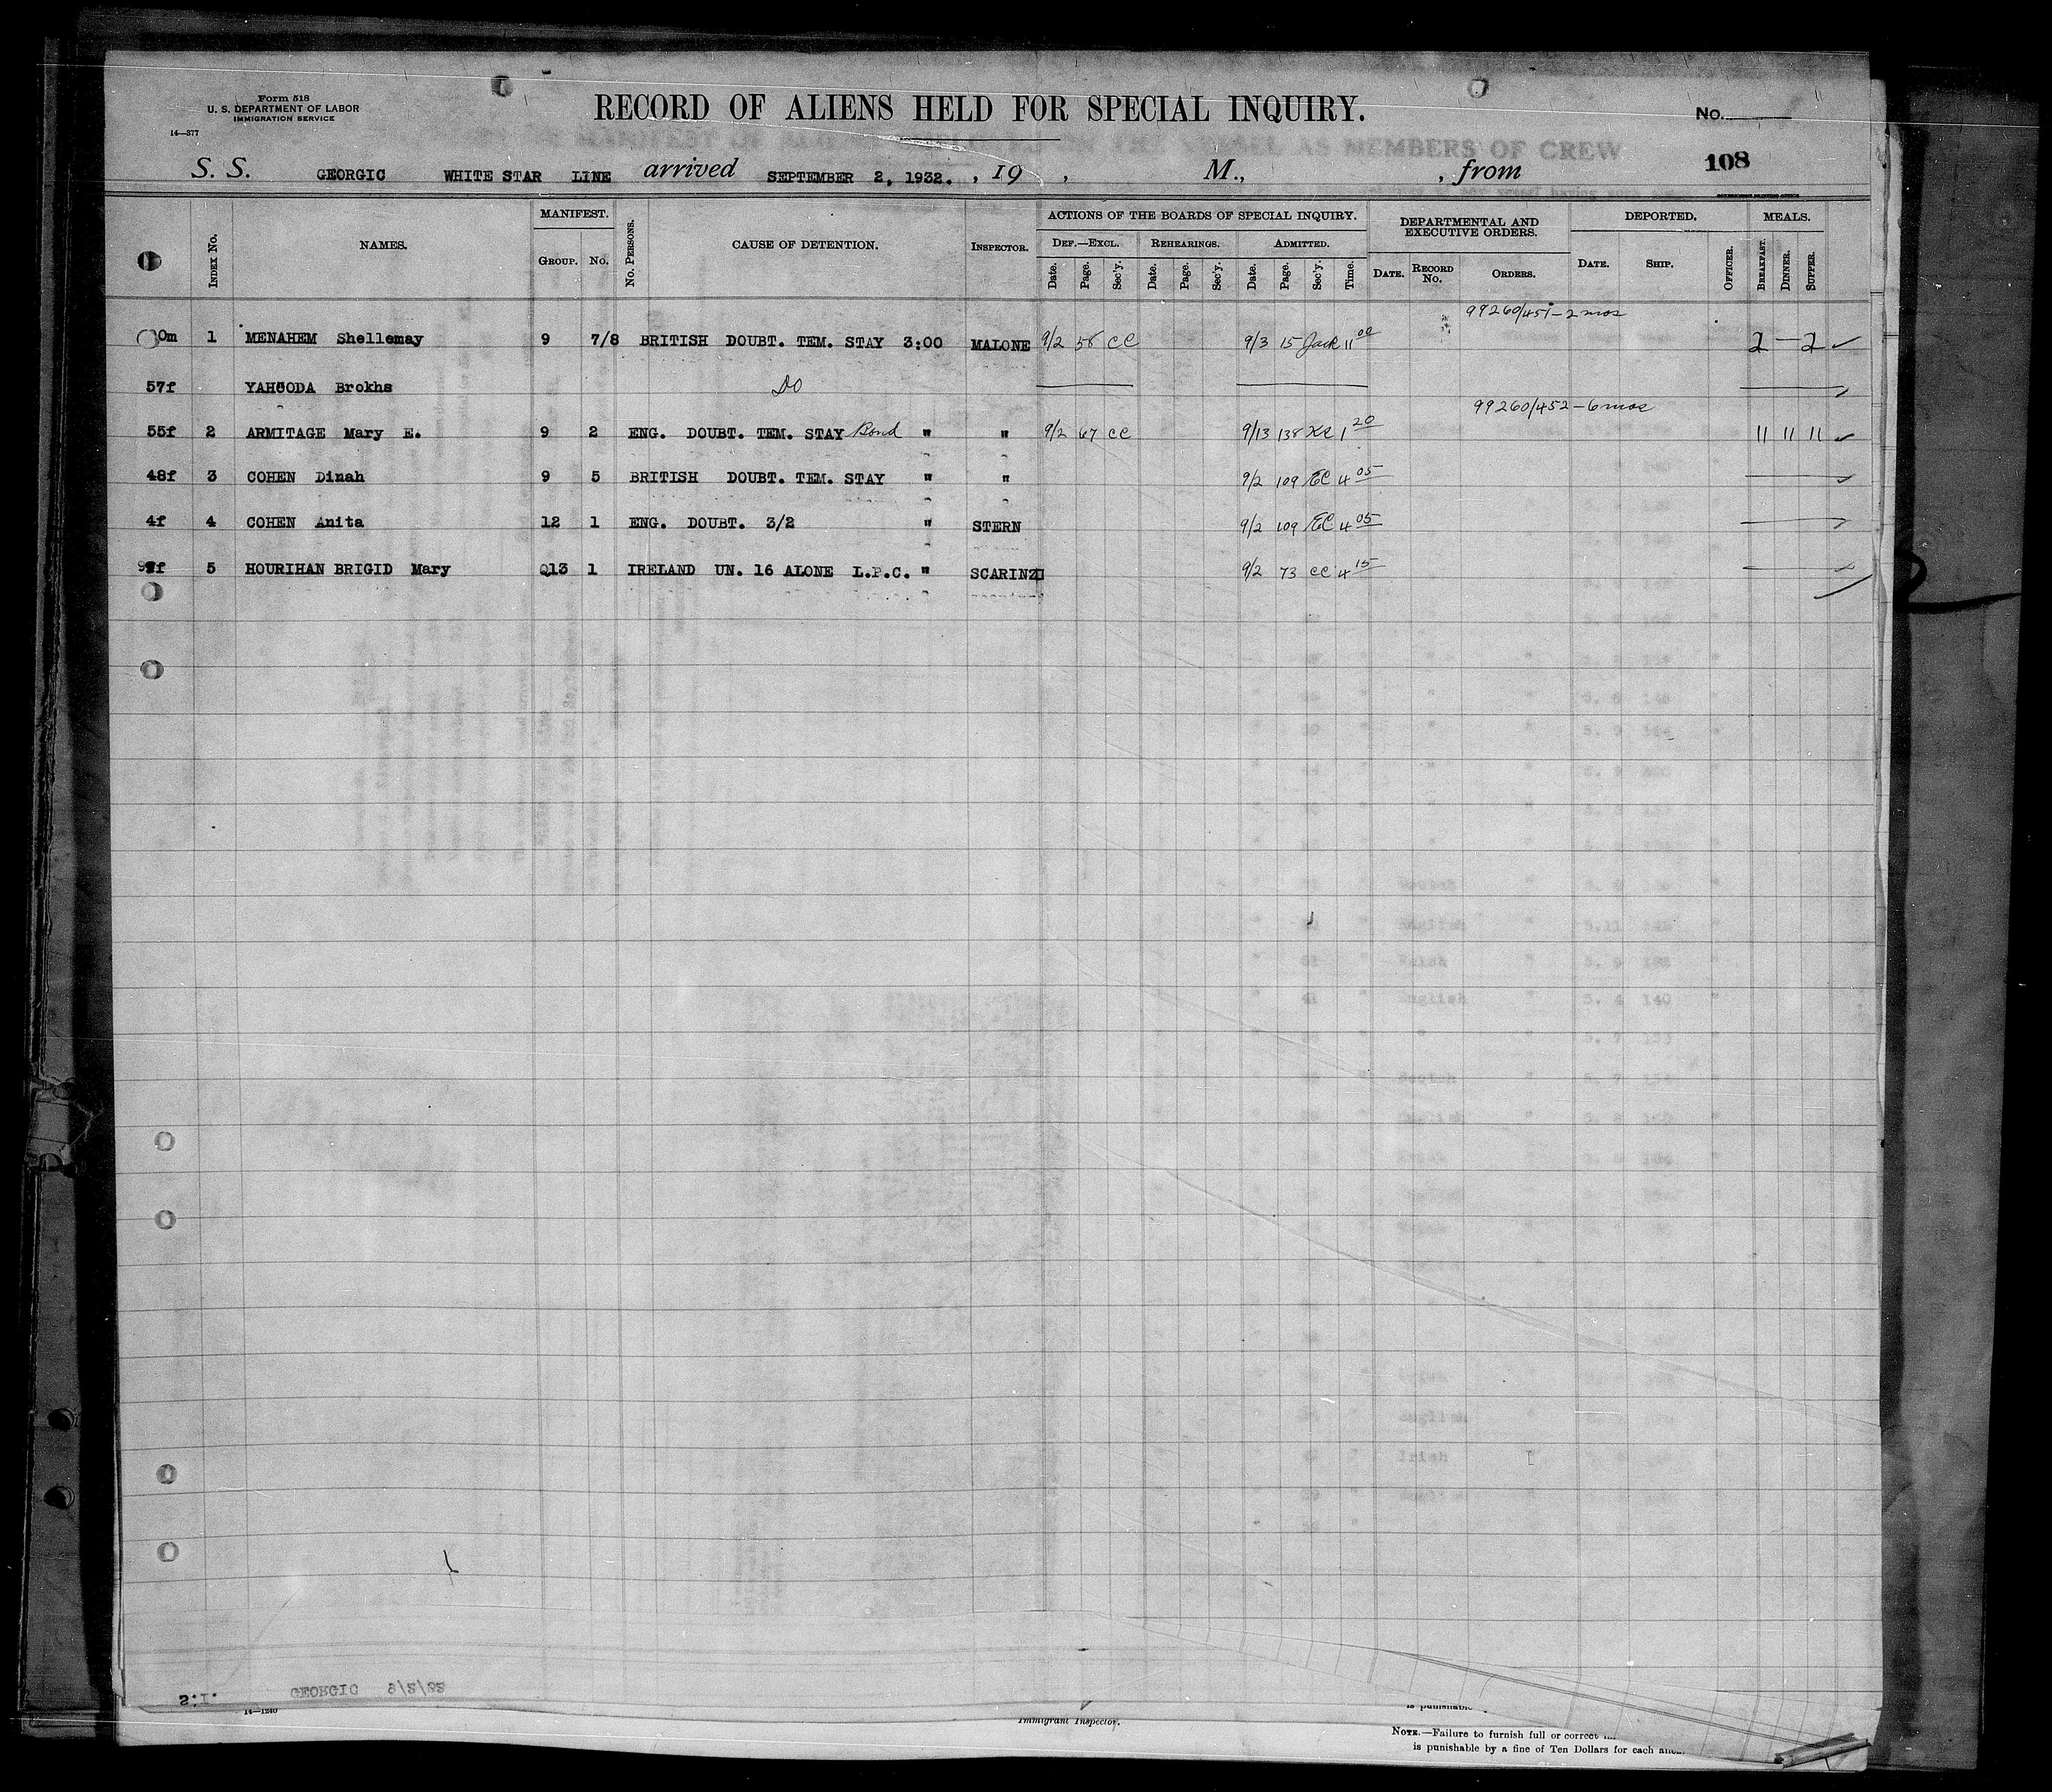 Form 518
U. S. DEPARTMENT OF LABOR
IMMIGRATION SERVICE
14—377
RECORD OF ALIENS HELD FOR SPECIAL INQUIRY.
No.
108
S. S. GEORGIC WHITE STAR LINE arrived SEPTEMBER 2, 1932. , 19 , M., , from
INDEX No. NAMES. MANIFEST. GROUP. No. No. PERSONS. CAUSE OF DETENTION. INSPECTOR. ACTIONS OF THE BOARDS OF SPECIAL INQUIRY. DEF.—EXCL. Date. Page. Sec'y. REHEARINGS. Date. Page. Sec'y. ADMITTED. Date. Page. Sec'y. Time. DEPARTMENTAL AND EXECUTIVE ORDERS. DATE. RECORD No. ORDERS. DEPORTED. DATE. SHIP. OFFICER. MEALS. BREAKFAST. DINNER. SUPPER.
99260/451-2 mos
0m 1 MENAHEM Shellemay 9 7/8 BRITISH DOUBT. TEM. STAY 3:00 MALONE 9/2 58 CC 9/3 15 Jack 11 00 2 — 2 ✓
57f YAHOODA Brokhs DO
99260/452-6 mos
55f 2 ARMITAGE Mary E. 9 2 ENG. DOUBT. TEM. STAY Bond " " 9/2 67 CC 9/13 138 1 20 11 11 11 ✓
48f 3 COHEN Dinah 9 5 BRITISH DOUBT. TEM. STAY " " 9/2 109 EC 4 05
4f 4 COHEN Anita 12 1 ENG. DOUBT. 3/2 " STERN 9/2 109 EC 4 05
5 HOURIHAN BRIGID Mary Q13 1 IRELAND UN. 16 ALONE L.P.C. " SCARINZI 9/2 73 CC 4 15
S.I. GEORGIC
14—1240
Immigrant Inspector.
is punishable
NOTE.—Failure to furnish full or correct
is punishable by a fine of Ten Dollars for each